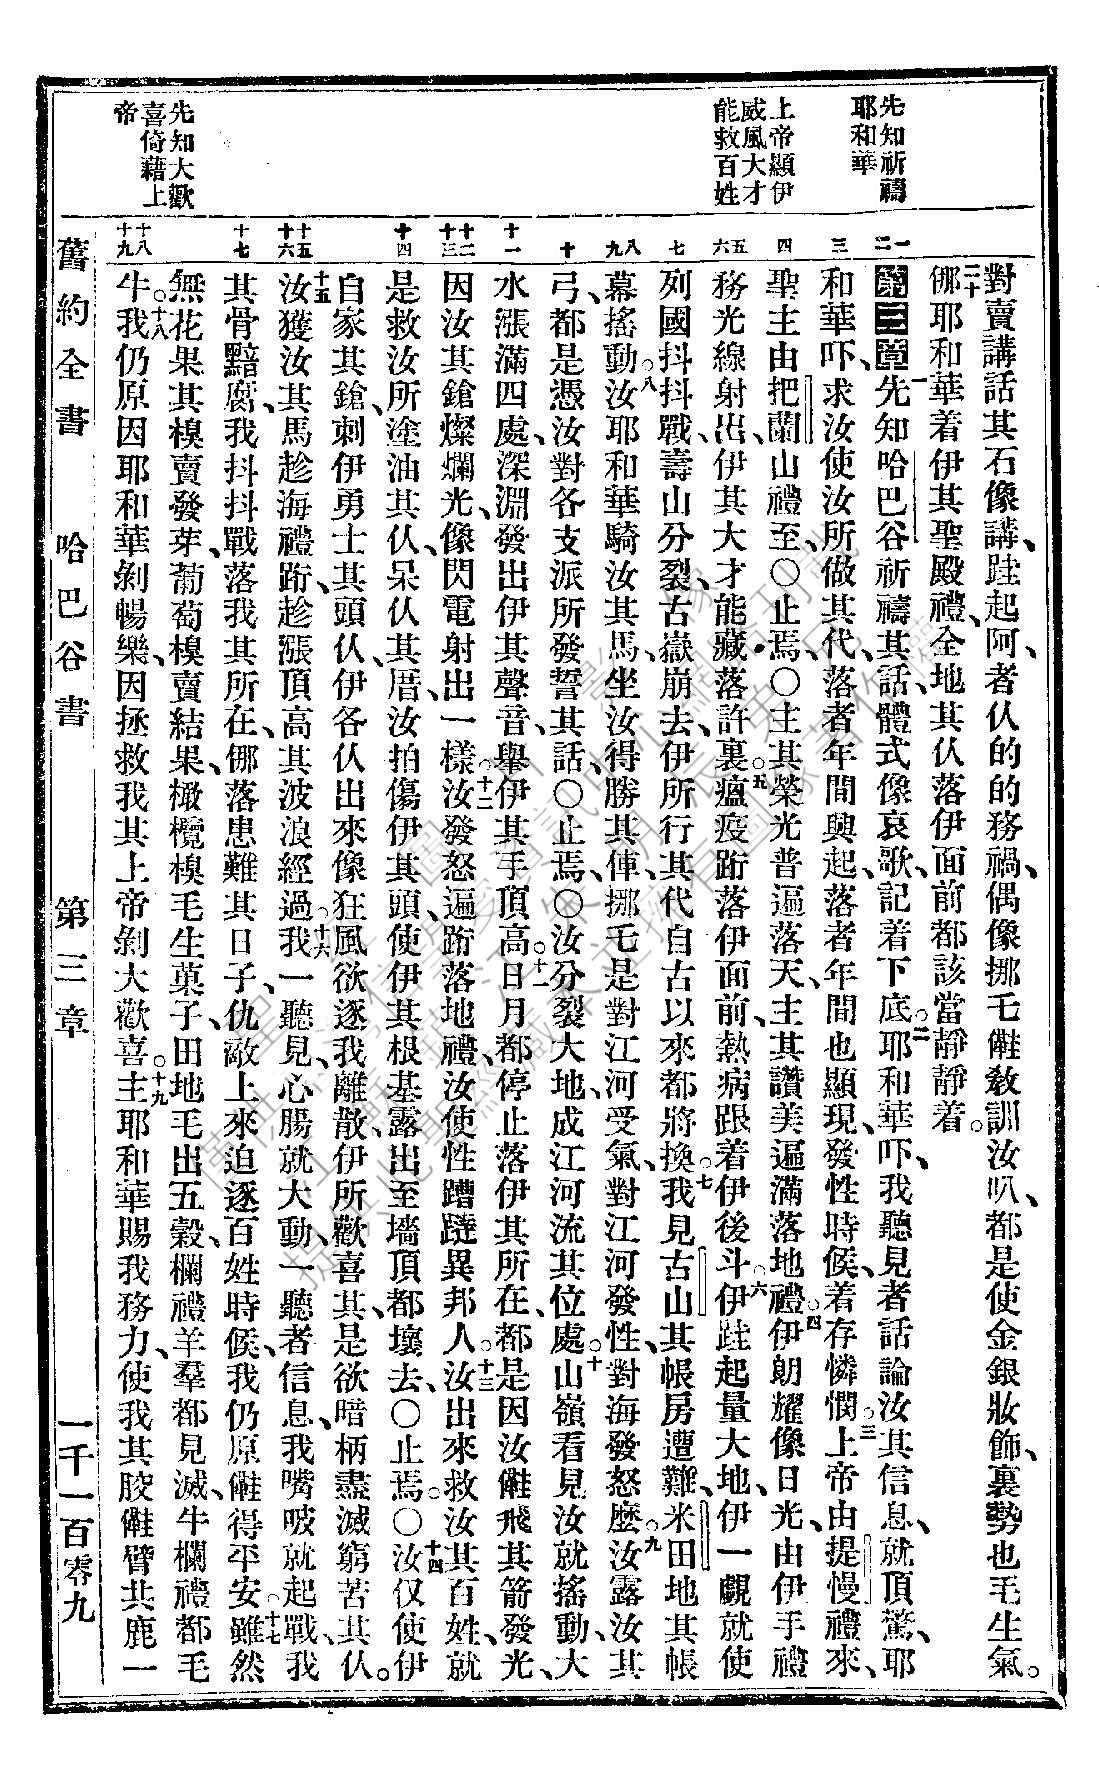 先知祈禱
耶和華
上帝顯伊
威風大才
能救百姓
先知大歡
喜倚藉上
帝
一
二
三
四
五
六
七
八
九
十
十一
十二
十三
十四
十五
十六
十七
十八
十九
對賣講話其石像講、跬起阿、者仈的的務禍、偶像挪乇𣍐教訓汝叭、都是使金銀妝飾、裏勢也毛生氣。
二十㑚耶和華着伊其聖殿禮、全地其仈落伊面前都該當靜靜着。
第三章一先知哈巴谷祈禱其話、體式像哀歌、記着下底。二耶和華吓、我聽見者話論汝其信息、就頂驚、耶
和華吓、求汝使汝所做其代、落者年間興起、落者年間也顯現、發性時候、着存憐憫。三上帝由提慢禮來、
聖主由把蘭山禮至、〇止焉、〇主其榮光普遍落天、主其讚美遍滿落地。四禮伊朗耀像日光、由伊手禮
務光線射出、伊其大才能藏落許裏。五瘟疫跡落伊面前、熱病跟着伊後斗。六伊跬起量大地、伊一覷就使
列國抖抖戰、壽山分裂、古嶽崩去、伊所行其代自古以來都將換。七我見古山其帳房遭難、米田地其帳
幕搖動。八汝耶和華騎汝其馬、坐汝得勝其俥、挪毛是對江河受氣、對江河發性、對海發怒麽。九汝露汝其
弓、都是憑汝對各支派所發誓其話、〇止焉、〇汝分裂大地、成江河流其位處。十山嶺看見汝就搖動、大
水漲滿四處、深淵發出伊其聲音、舉伊其手頂高。十一日月都停止落伊其所在、都是因汝𣍐飛其箭發光、
因汝其鎗燦爛光、像閃電射出一樣。十二汝發怒遍跡落地禮、汝使性蹧躂異邦人。十三汝出來救汝其百姓、就
是救汝所塗油其仈、呆仈其厝、汝拍傷伊其頭、使伊其根基露出至墻頂都壞去、〇止焉。〇十四汝仅使伊
自家其鎗、刺伊勇士其頭、仈伊各仈出來像狂風欲逐我離散、伊所歡喜其、是欲暗柄盡滅窮苦其仈。
十五汝獲汝其馬趁海禮跡、趁漲頂高其波浪經過。十六我一聽見、心腸就大動、一聽者信息、我嘴唆就起戰、我
其骨黯腐、我抖抖戰落我其所在、㑚落患難其日子、仇敵上來迫逐百姓時候、我仍原𣍐得平安。十七雖然
無花果其槼賣發芽、葡萄槼賣結果、橄欖槼毛生菓子、田地毛出五穀、欄禮羊羣都見滅、牛欄禮都毛
牛。十八我仍原因耶和華剝暢樂、因拯救我其上帝剝大歡喜。十九主耶和華賜我務力、使我其骹𣍐臂共鹿一
舊約全書　哈巴谷書　第三章　一千一百零九